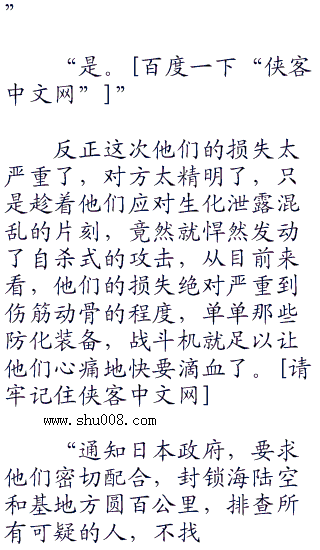 ”
“是。[百度一下“侠客
中文网”]”
反正这次他们的损失太
严重了，对方太精明了，只
是趁着他们应对生化泄露混
乱的片刻，竟然就悍然发动
了自杀式的攻击，从目前来
看，他们的损失绝对严重到
伤筋动骨的程度，单单那些
防化装备，战斗机就足以让
他们心痛地快要滴血了。[请
牢记住侠客中文网]
www.shu008.com
“通知日本政府，要求
他们密切配合，封锁海陆空
和基地方圆百公里，排查所
有可疑的人，不找